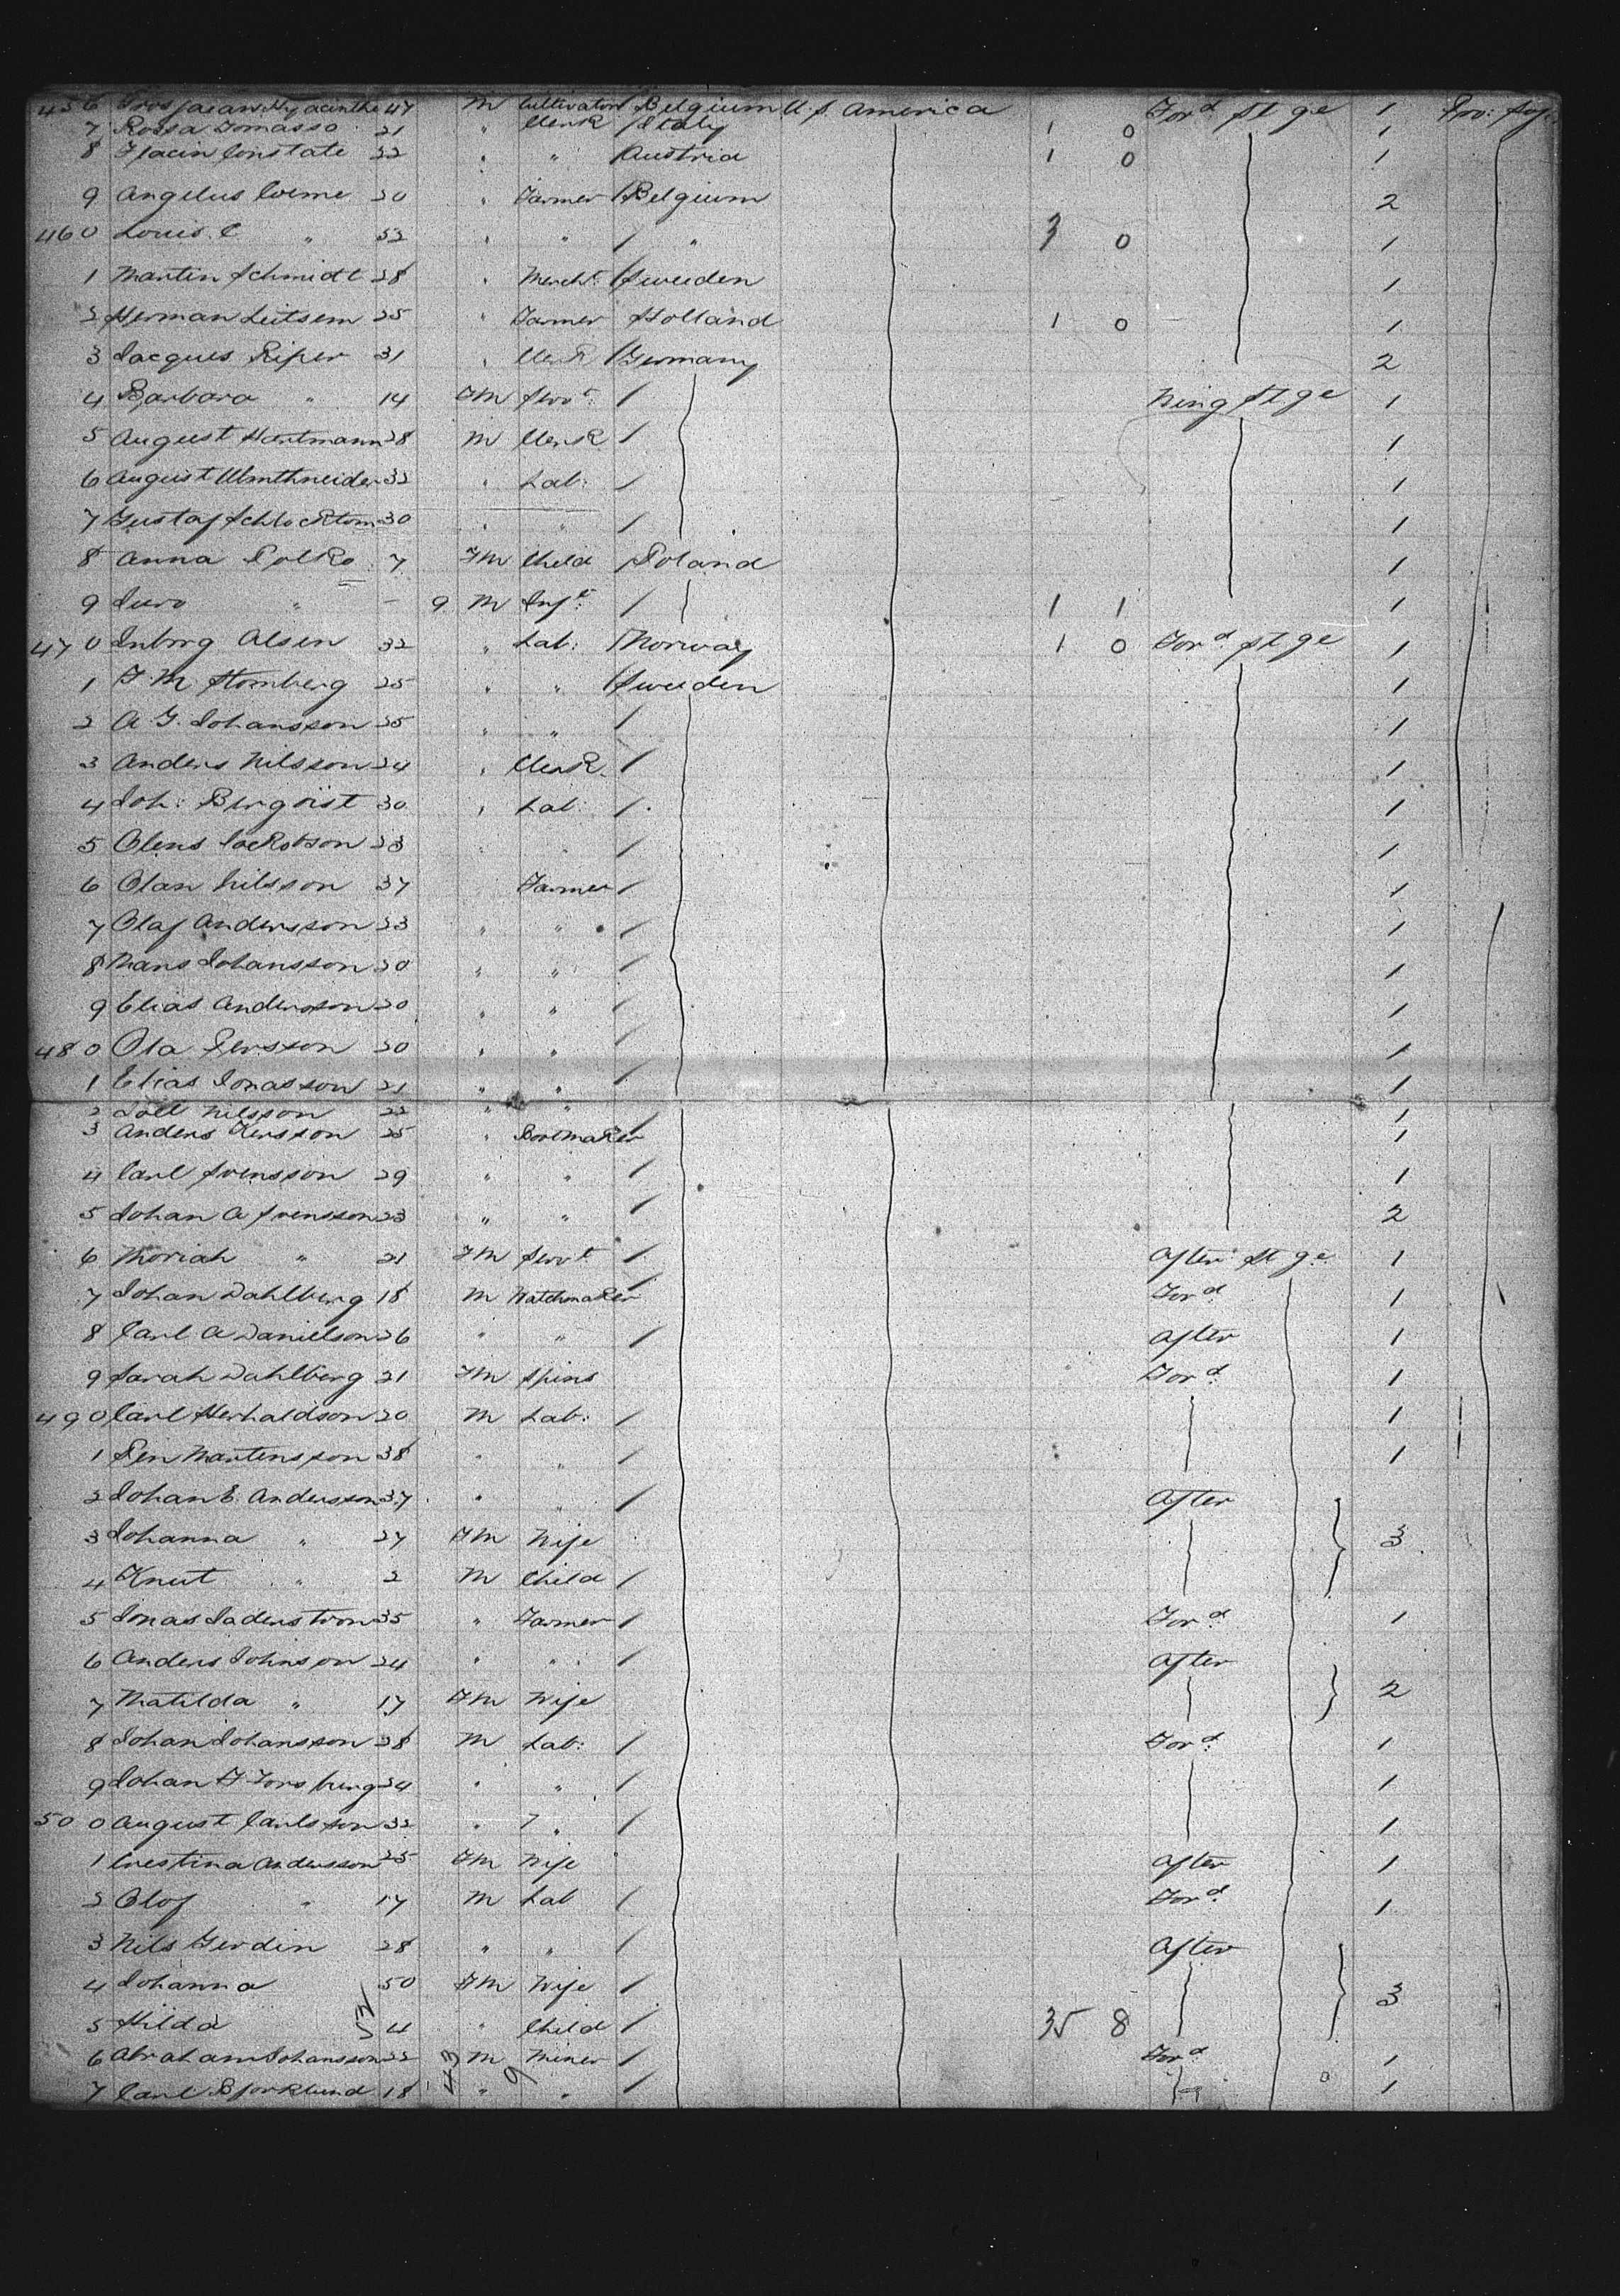 456 47 M Cultivator Belgium U. S. America For^d St ge 1
7 Rossa Tomasso 21 " Clerk Italy 1 0 1
8 Constate 22 " " Austria 1 0 1
9 Angelus Coeme 20 " Farmer Belgium 2
460 Louis. C " 52 " " " 3 0 1
1 Martin Schmidt 28 " Mercht. Sweeden 1
2 Herman Leitsem 25 " Farmer Holland 1 0 1
3 Jacques Riper 31 " Clerk Germany 2
4 Barbara " 14 FM Servt. Wing St ge 1
5 August Hartmann 28 M Clerk 1
6 August 32 " Lab: 1
7 Gustaf 30 " " 1
8 Anna Polko 7 FM Child Poland 1
9 " - 9 M Inft. 1 1 1
470 Inbrg Olsen 32 " Lab: Norway 1 0 For^d St ge 1
1 F. M. Stomberg 25 " " Sweeden 1
2 A G. Johansson 25 " " 1
3 Anders Nilsson 24 " Clerk. 1
4 Joh: Bergqist 30 " Lab: 1
5 Olens Jackobson 23 1
6 Olan Nilsson 37 Farmer 1
7 Olaf Andersson 23 " " 1
8 Hans Johansson 20 " " 1
9 Elias Andersson 20 " " 1
480 Ola Persson 20 " " 1
1 Elias Jonasson 21 " " 1
2 Nilsson 22 " " 1
3 Anders Persson 25 " Bootmaker 1
4 Carl Svensson 29 " " 1
5 Johan A Svensson 23 " " 2
6 Moriah " 21 FM Servt 1 After St ge 1
7 Johan Dahlberg 18 M Watchmaker For^d 1
8 Carl A Danielson 26 " " After 1
9 Sarah Dahlberg 21 FM Spins For^d 1
490 Carl Herhaldson 20 M Lab: 1
1 Pen Martensson 38 " " 1
2 Johan E. Andersson 37 " " After
3 Johanna " 27 FM Wife 3
4 Knut " 2 M Child
5 Jonas Saderstrom 35 " Farmer For^d 1
6 Anders Johnson 24 " " After
7 Matilda " 17 FM Wife 2
8 Johan Johansson 28 M Lab: For^d 1
9 Johan F Forsberg 24 " " 1
500 August Carlsson 32 " " 1
1 Crestina Andersson 25 FM Wife After 1
2 Olof " 17 M Lab For^d 1
3 Nils Gerdin 28 " " After
4 Johanna 50 FM Wife 3
5 Hilda 4 " Child 35 8
6 Abraham Johansson 22 M Miner For^d 1
7 Carl Bjorklund 18 " " 1